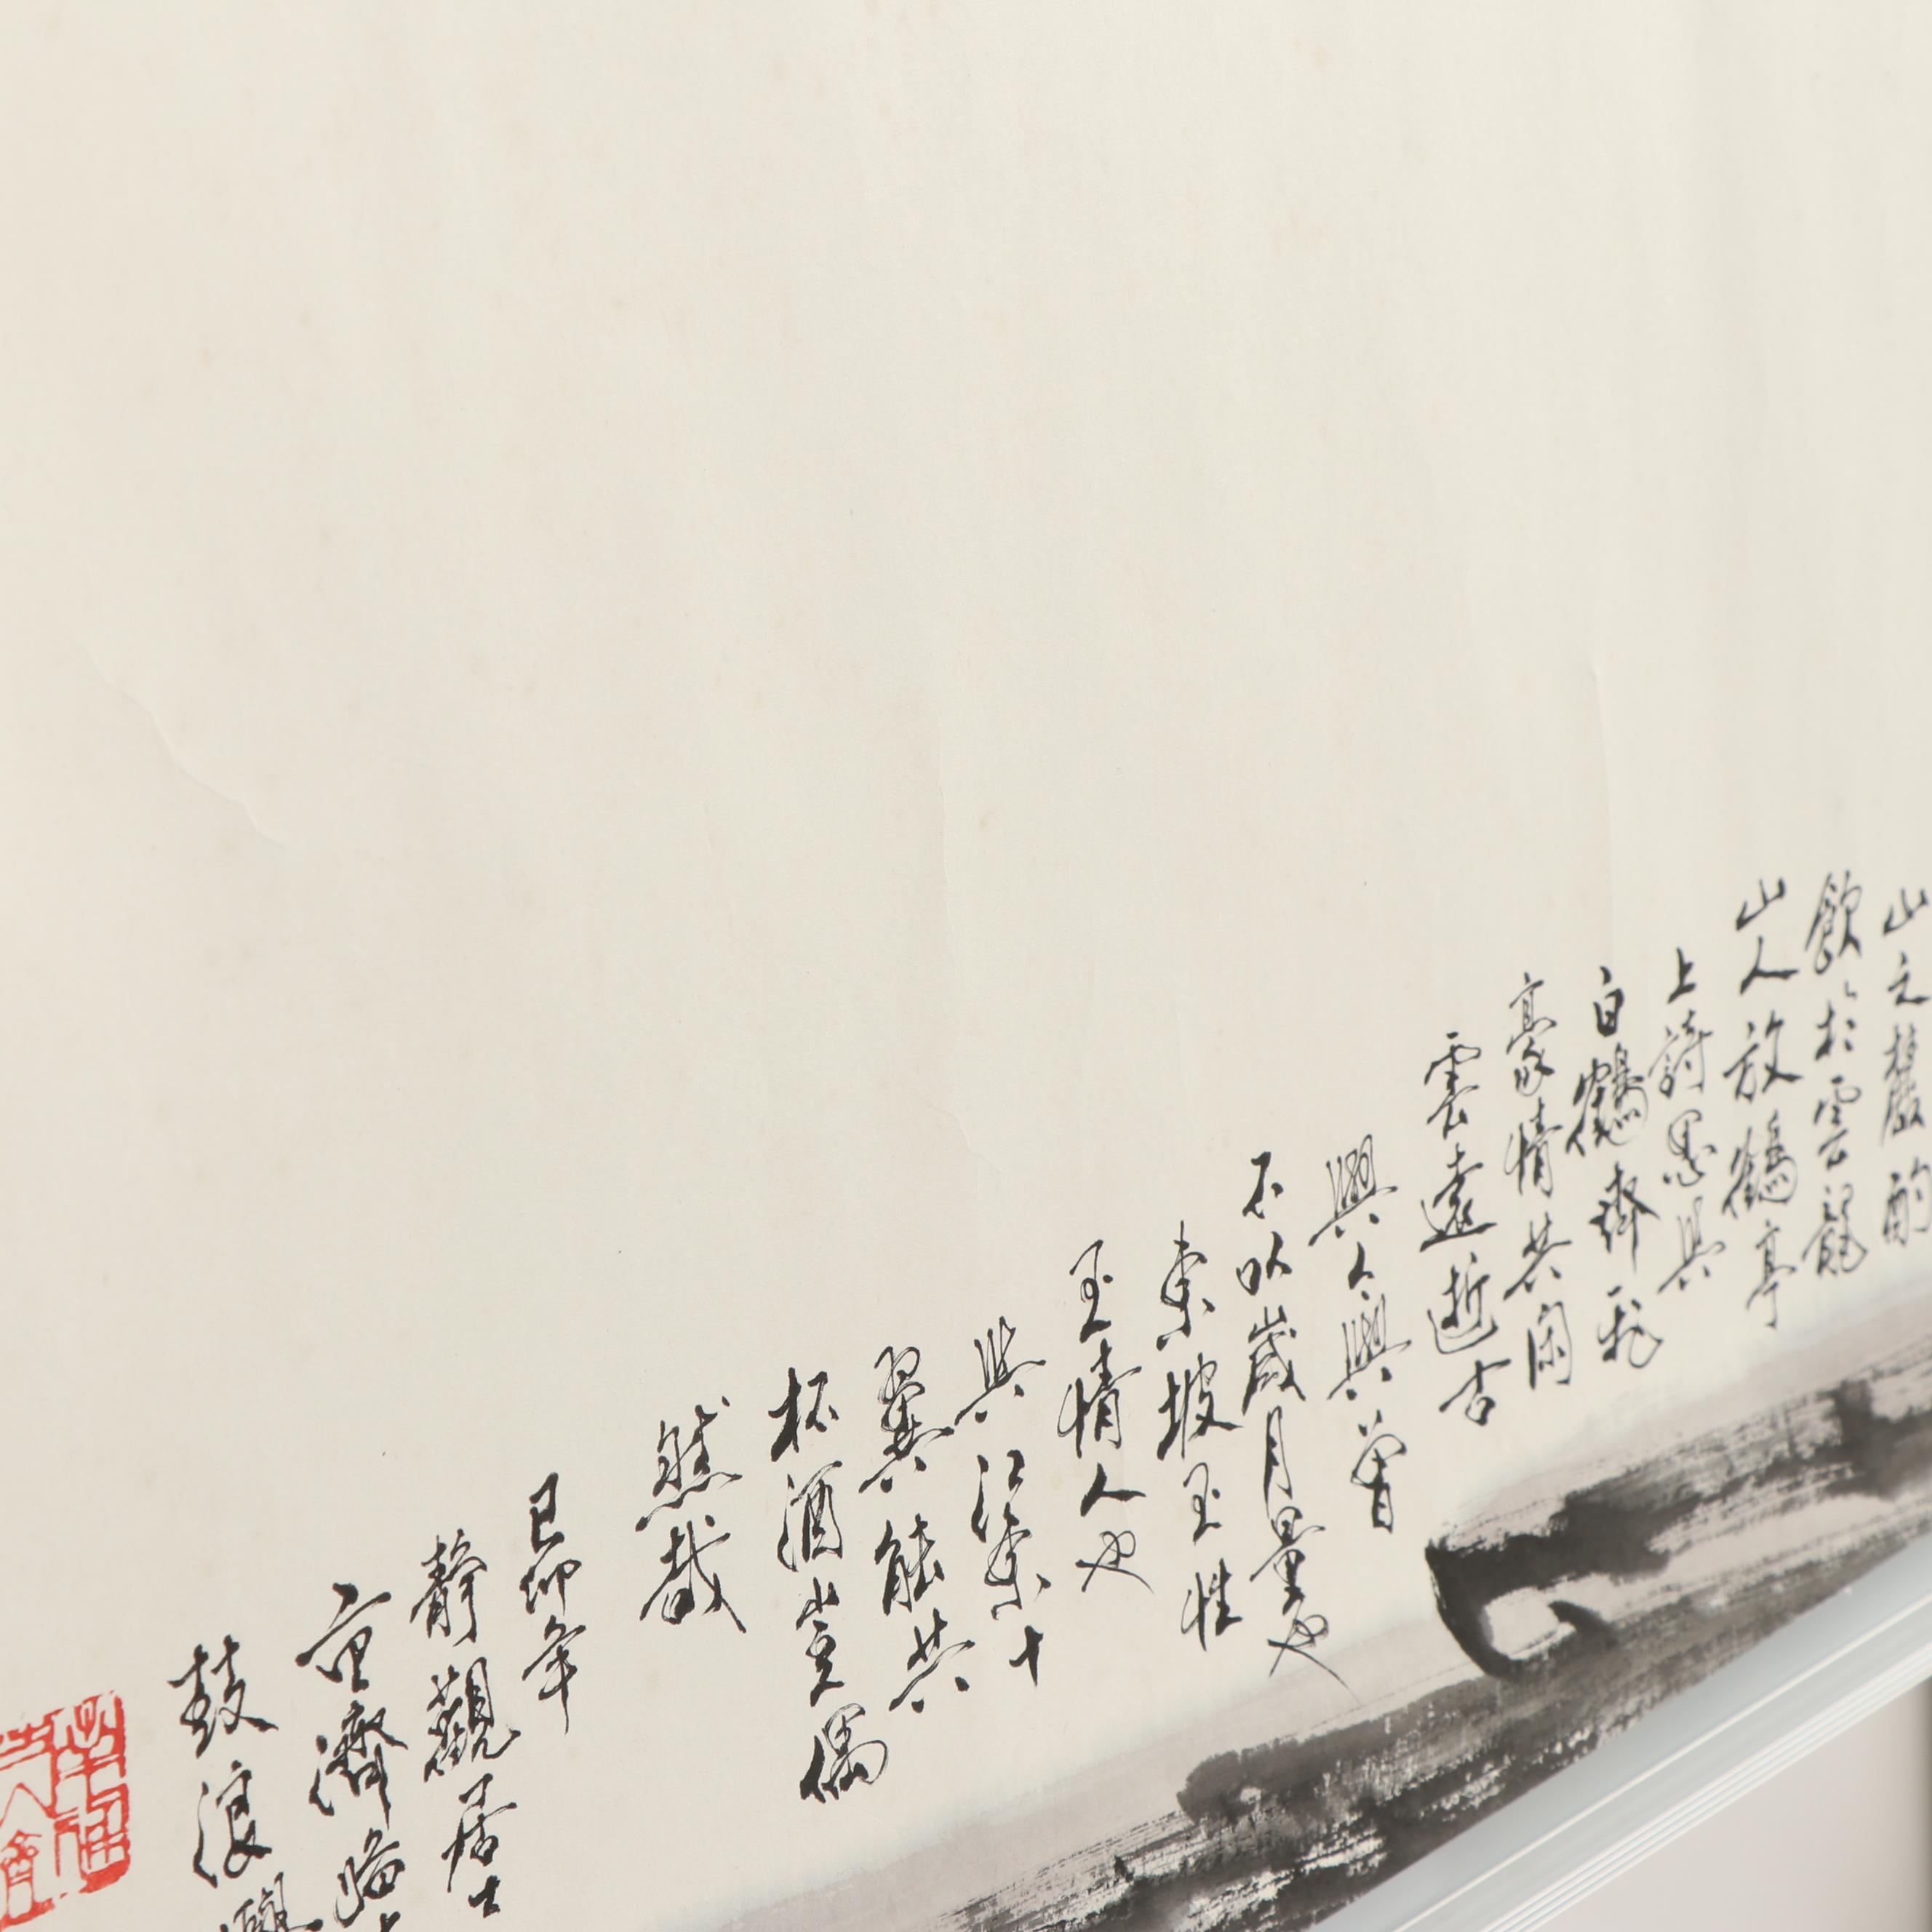 山之麓酌
飲於雲龍
山人放鶴亭
上詩墨與
白鶴齊飛
豪情共閑
雲遠逝古
興人興曾
不以歲月量也
東坡玉性
玉情人也
與江東十
翼能共
杯酒豈偶
然哉
己卯年
靜觀居士
范濟臨
鼓浪